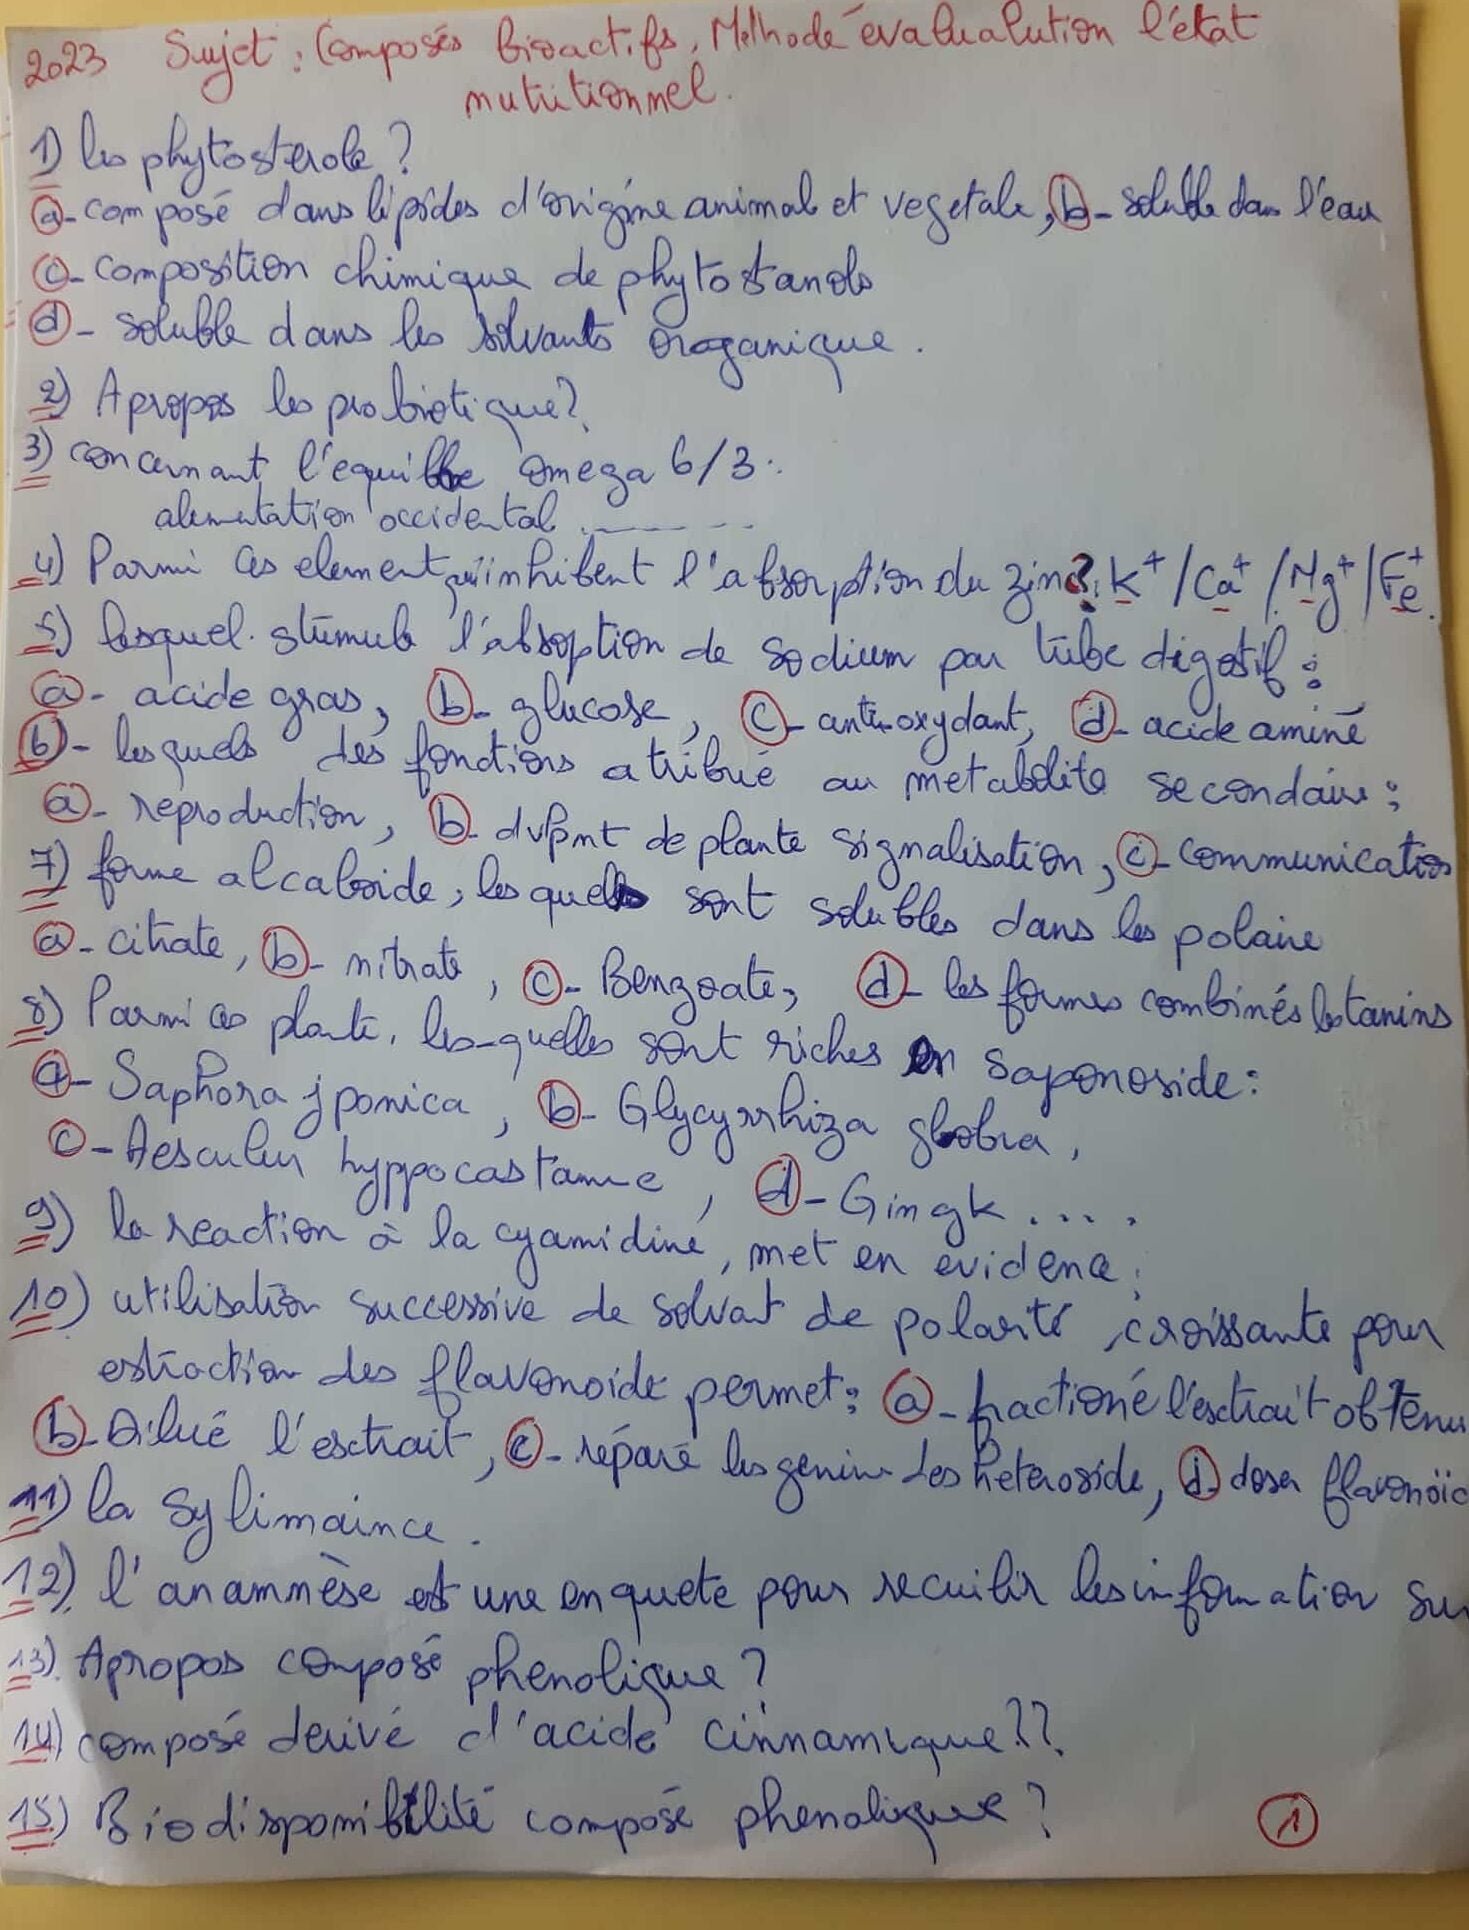 2023 Sujet : Composés bioactifs, Méthode évalualution l'état
nutritionnel.
1) les phytosterole ?
a- composé dans lipides d'origine animal et vegetale, b- soluble dans l'eau
c- composition chimique de phytostanols
d- soluble dans les solvants organique.
2) Apropos les probiotique ?
3) concernant l'equilibe omega 6/3 :
alimentation occidental ........
4) Parmi ces element qui inhibent l'absorption du zinc ? K+ / Ca+ / Mg+ / Fe+.
5) lesquel stimule l'absoption de sodium par tube digestif :
a- acide gras, b- glucose, c- antioxydant, d- acide aminé
6)- lesquels des fonctions atribué au metabolite secondaire :
a- reproduction, b- dvpmt de plante signalisation, c- communication
7) forme alcaloide, lesquels sont solubles dans les polaire
a- citrate, b- nitrate, c- Benzoate, d- les formes combinés les tanins
8) Parmi ces plante, les-quelles sont riches en saponoside :
a- Saphora jponica, b- Glycyrrhiza globra,
c- Aesculus hyppocastanne, d- Gingk ....
9) la reaction à la cyamidine, met en evidence :
10) utilisation successive de solvat de polarité croissante pour
estraction des flavonoide permet : a- fractioné l'esctrait obtenu
b- Dilué l'esctrait, c- réparé les genine des heteroside, d- doser flavonoïd
11) la Sylimaince.
12) l'anammèse est une enquete pour recuilir les information su
13) Apropos composé phenolique ?
14) composé derivé d'acide cinnamique ??
15) Biodisponibilité composé phenolique ?
1